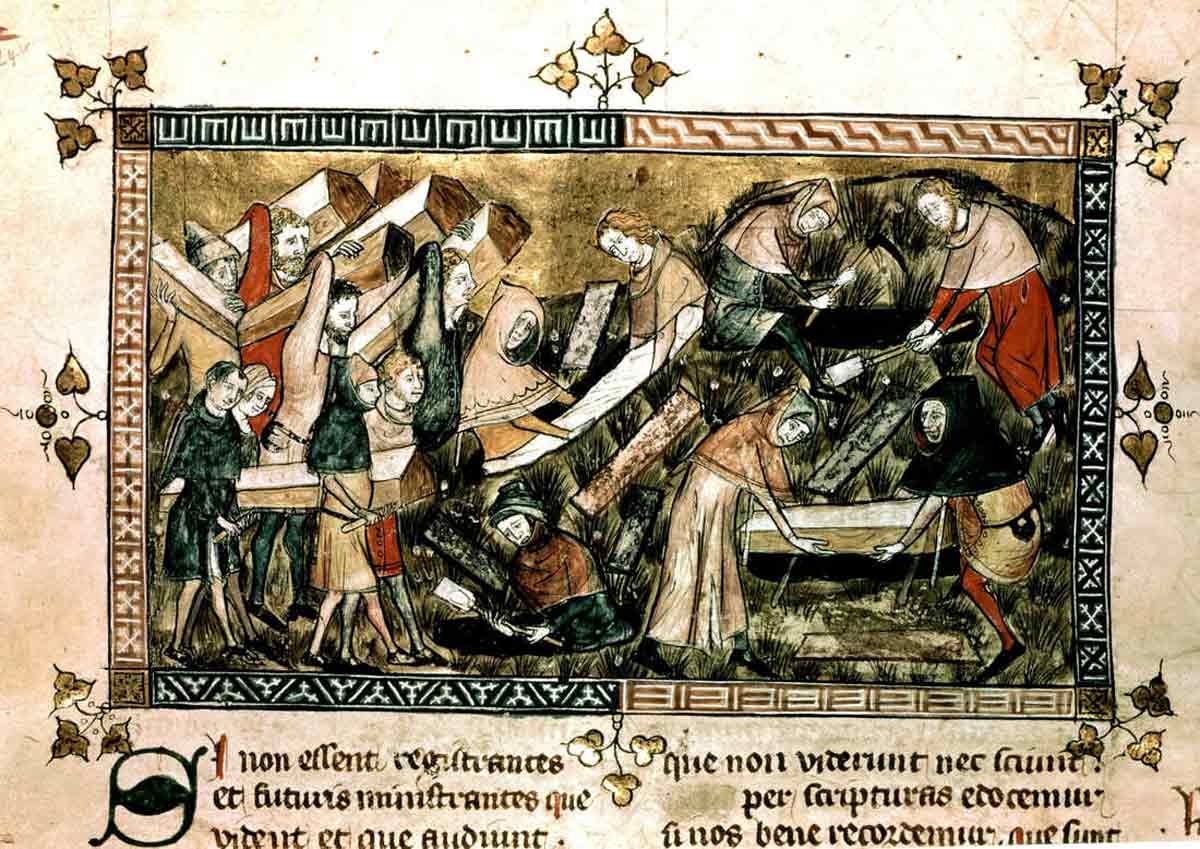 SI non essent registrantes
et futuris ministrantes que
vident et que audiunt .
que non viderunt nec sciunt :
per scripturas edocemur
si nos bene recordemur, que sunt